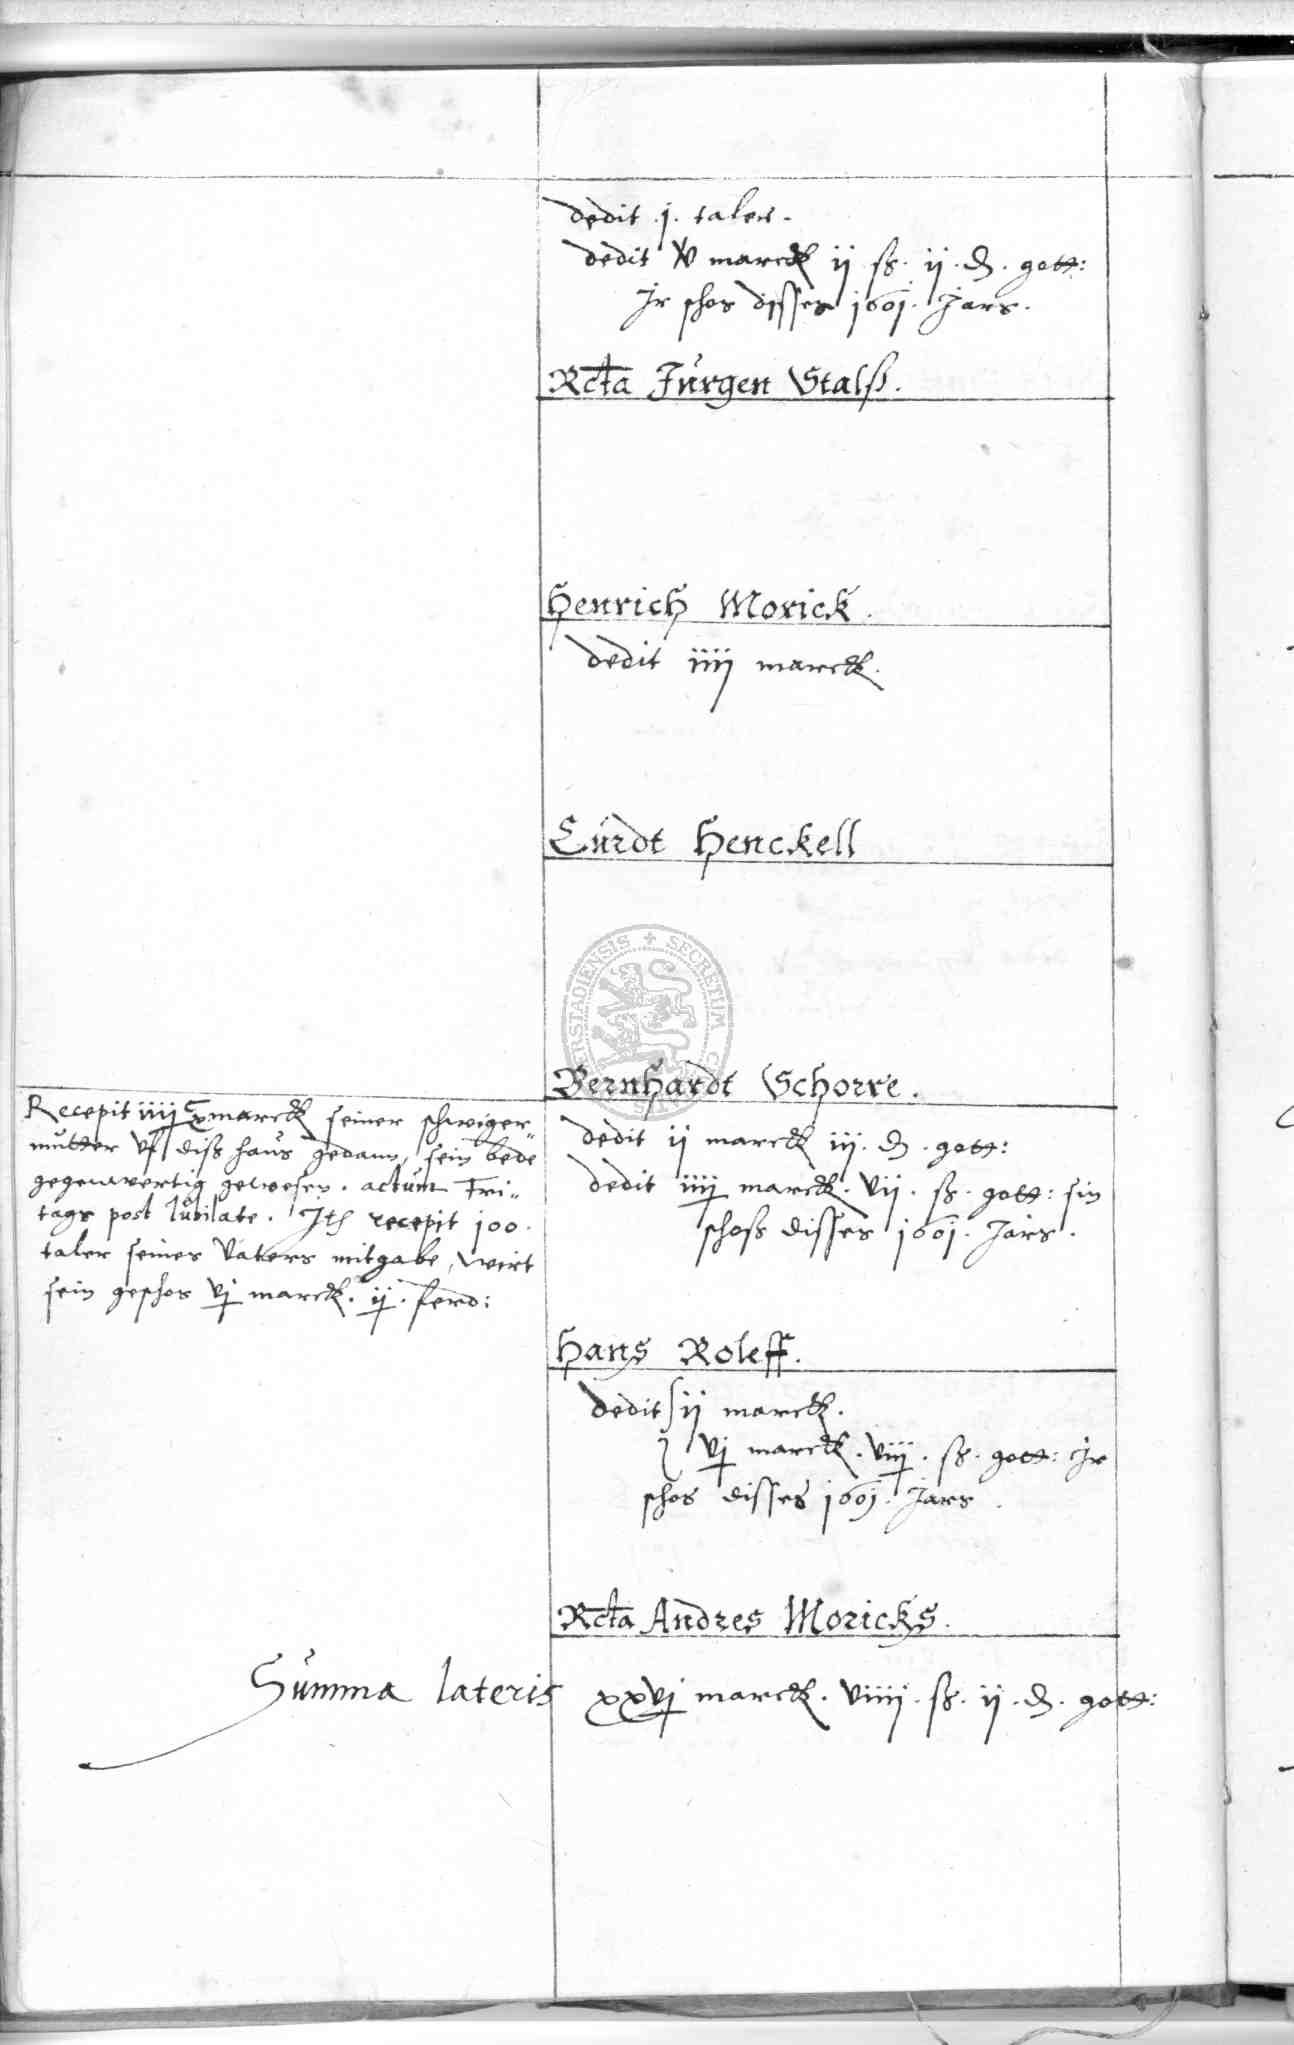 dedit .j. taler.
dedit v marck ij ß. ij. d. gott:
Jr schos disses 1601. Jars.
Rcta Jürgen Stalß.
Henrich Morick.
dedit iiij marck.
Cürdt Henckell
Bernhardt Schorre.
Recepit iiij marck seiner schwiger„
mütter vf diß haus gedann, sein bede
gegenwertig gewesen. actum Fri„
tags post Iubilate. Jth recepit 100.
taler seines Vaters mitgabe, wirt
sein geschos vj marck. ij. ferd:
dedit ij marck iij. d. gott:
dedit iiij marck. vij. ß. gott: sin
schoß disses 1601. Jars.
Hans Roleff.
dedit ij marck.
vj marck. viij. ß. gott: Jr
schos disses 1601. Jars.
Rcta Andres Moricks.
Summa lateris xxvj marck. viiij. ß. ij. d. gott:
SECRETUM